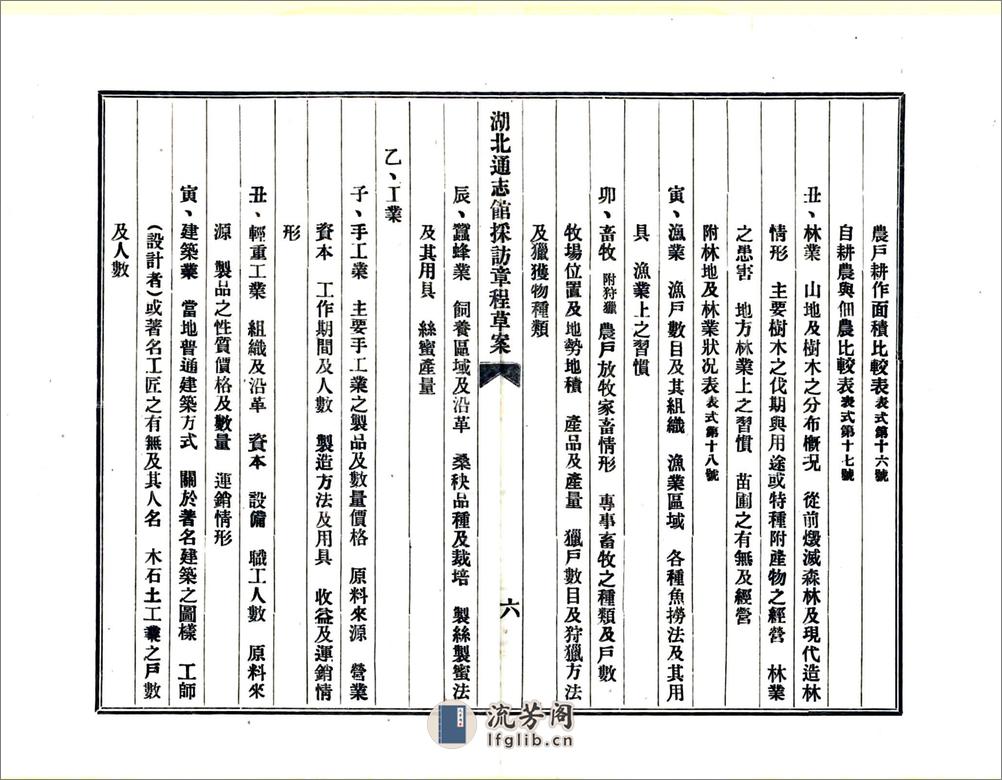 農戶耕作面積比較表表式第十六號
自耕農與佃農比較表表式第十七號
丑、林業　山地及樹木之分布概况　從前燬滅森林及現代造林
情形　主要樹木之伐期與用途或特種附產物之經營　林業
之患害　地方林業上之習慣　苗圃之有無及經營
附林地及林業狀况表表式第十八號
寅、漁業　漁戶數目及其組織　漁業區域　各種魚撈法及其用
具　漁業上之習慣
卯、畜牧附狩獵　農戶放牧家畜情形　專事畜牧之種類及戶數
牧場位置及地勢地積　產品及產量　獵戶數目及狩獵方法
及獵獲物種類
湖北通志館採訪章程草案　六
辰、蠶蜂業　飼養區域及沿革　桑秧品種及栽培　製絲製蜜法
及其用具　絲蜜產量
乙、工業
子、手工業　主要手工業之製品及數量價格　原料來源　營業
資本　工作期間及人數　製造方法及用具　收益及運銷情
形
丑、輕重工業　組織及沿革　資本　設備　職工人數　原料來
源　製品之性質價格及數量　運銷情形
寅、建築業　當地普通建築方式　關於著名建築之圖樣　工師
(設計者)或著名工匠之有無及其人名　木石土工業之戶數
及人數
流芳阁
lfglib.cn